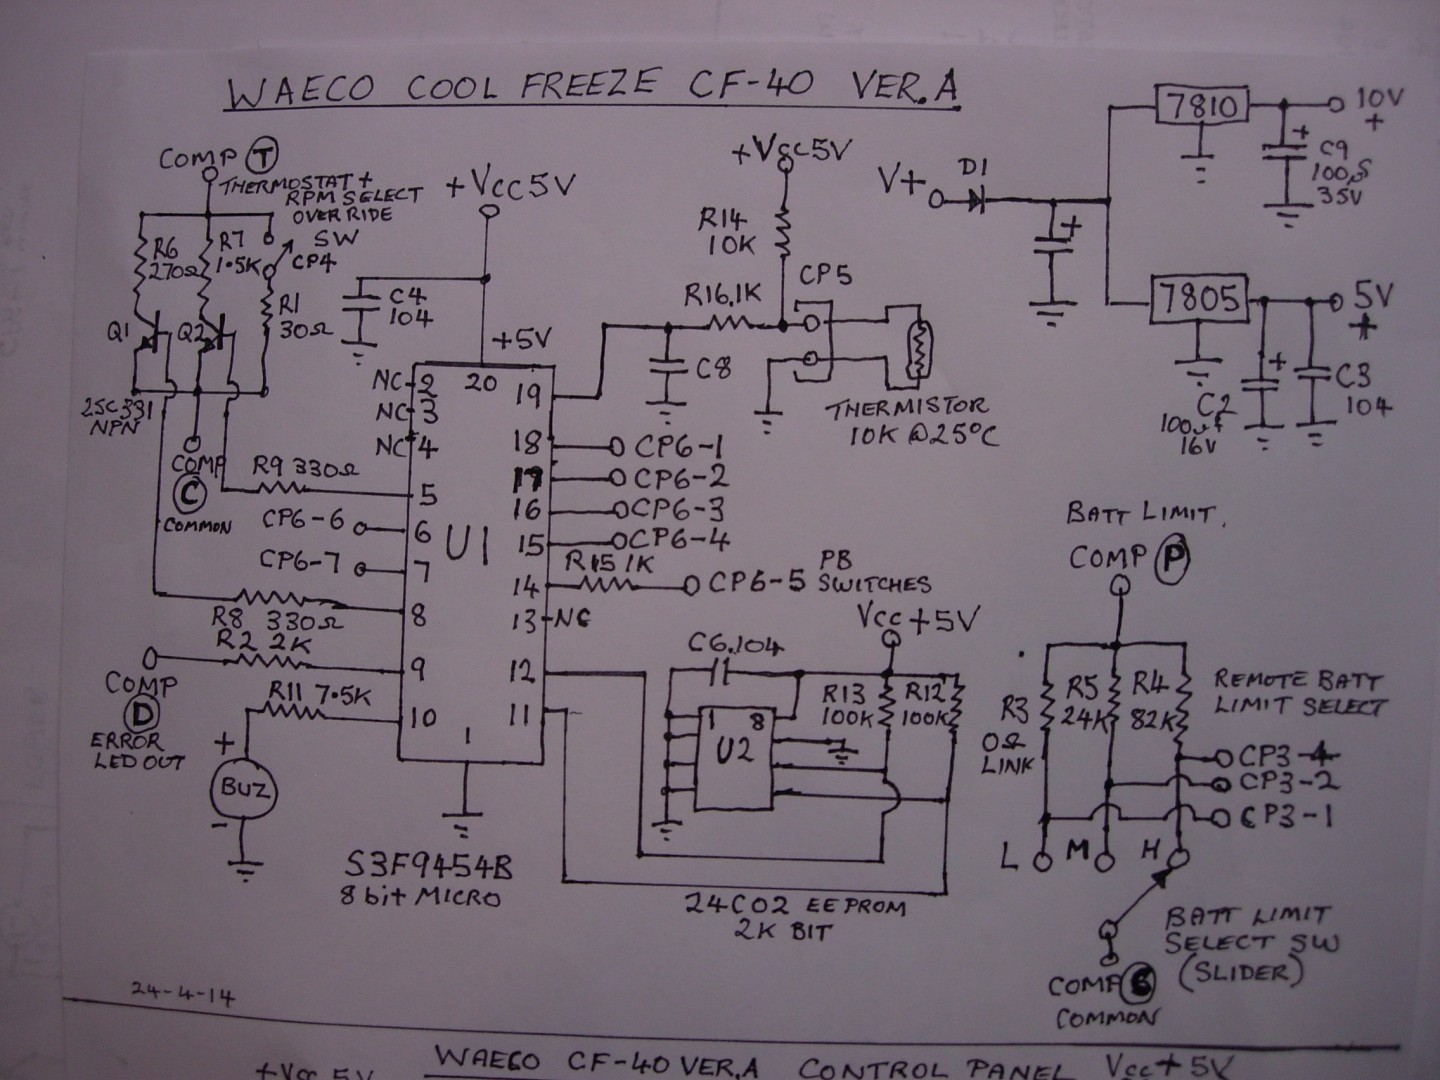 WAECO COOL FREEZE CF-40 VER.A
COMP T
THERMOSTAT +
RPM SELECT
OVER RIDE
SW
CP4
R6
270Ω
R7
1.5K
R1
30Ω
Q1
Q2
2SC331
NPN
COMP
C
COMMON
+Vcc 5V
C4
104
+5V
NC
NC
NC
2
3
4
5
6
7
8
9
10
1
20
19
18
17
16
15
14
13
12
11
U1
R9 330Ω
CP6-6
CP6-7
R8 330Ω
R2 2K
COMP
D
ERROR
LED OUT
R11 7.5K
+
BUZ
-
S3F9454B
8 bit MICRO
24-4-14
+Vcc 5V
R14
10K
R16.1K
CP5
C8
THERMISTOR
10K @ 25°C
CP6-1
CP6-2
CP6-3
CP6-4
R15 1K
CP6-5
PB
SWITCHES
NC
Vcc +5V
C6.104
R13
100K
R12
100K
1
8
U2
24C02 EEPROM
2K BIT
V+
D1
+
7810
10V
+
+
C9
100µF
35V
7805
5V
+
+
C2
100uf
16V
C3
104
BATT LIMIT.
COMP P
R3
0Ω
LINK
R5
24K
R4
82K
REMOTE BATT
LIMIT SELECT
CP3-4
CP3-2
CP3-1
L
M
H
BATT LIMIT
SELECT SW
(SLIDER)
COMP C
COMMON
+Vcc 5V
WAECO CF-40 VER.A CONTROL PANEL
Vcc+ 5V